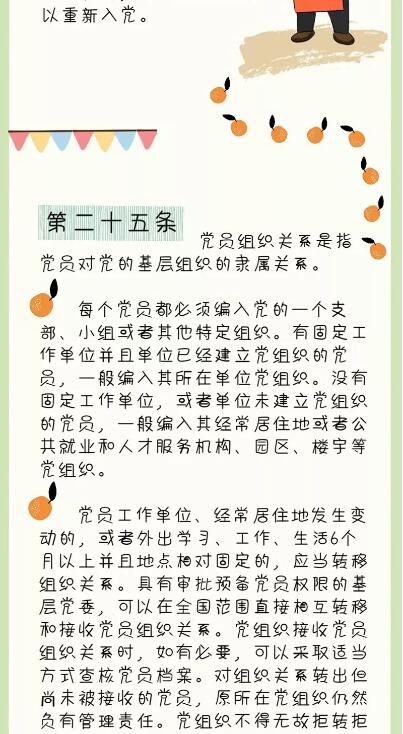 以重新入党。
第二十五条
党员组织关系是指
党员对党的基层组织的隶属关系。
每个党员都必须编入党的一个支
部、小组或者其他特定组织。有固定工
作单位并且单位已经建立党组织的党
员，一般编入其所在单位党组织。没有
固定工作单位，或者单位未建立党组织
的党员，一般编入其经常居住地或者公
共就业和人才服务机构、园区、楼宇等
党组织。
党员工作单位、经常居住地发生变
动的，或者外出学习、工作、生活6个
月以上并且地点相对固定的，应当转移
组织关系。具有审批预备党员权限的基
层党委，可以在全国范围直接相互转移
和接收党员组织关系。党组织接收党员
组织关系时，如有必要，可以采取适当
方式查核党员档案。对组织关系转出但
尚未被接收的党员，原所在党组织仍然
负有管理责任。党组织不得无故拒转拒